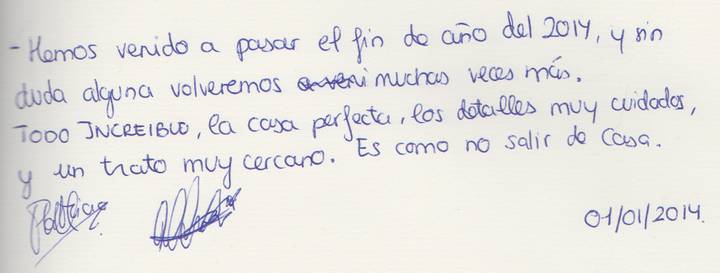 - Hemos venido a pasar el fin de año del 2014, y sin
duda alguna volveremos a veni muchas veces más.
TODO INCREIBLE, la casa perfecta, los detalles muy cuidados,
y un trato muy cercano. Es como no salir de casa.
Patricia
01/01/2014.